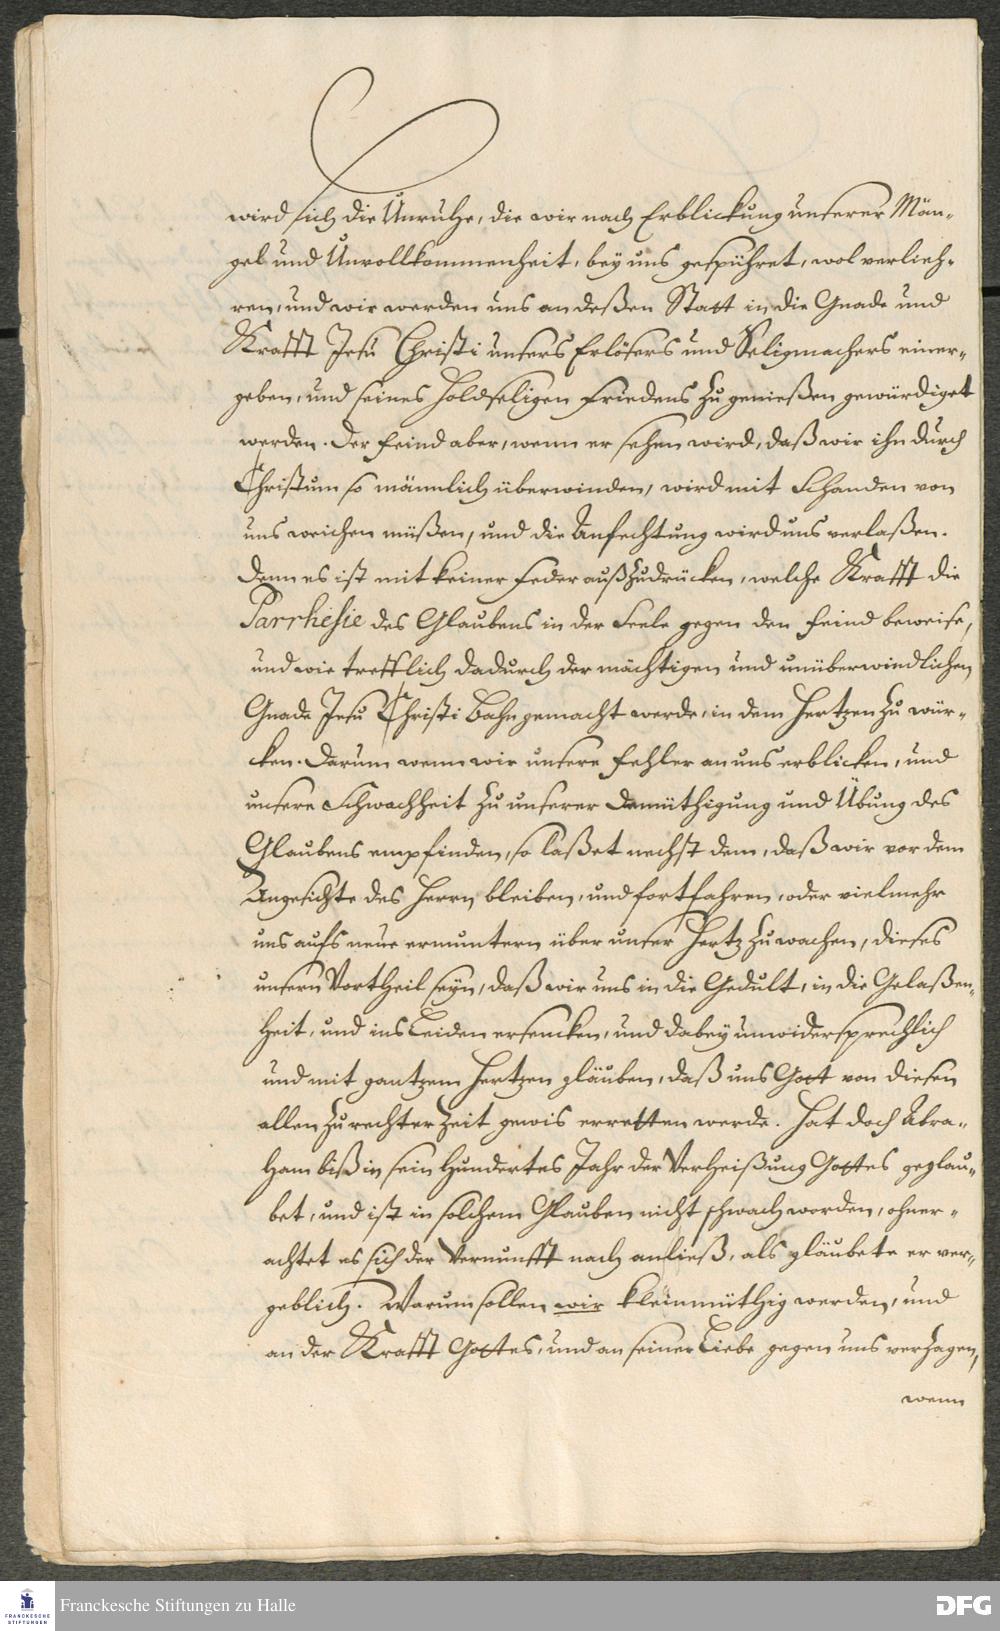 wird sich die Unruhe, die wir nach Erblickung unserer Män-
gel und Unvollkommenheit, bey uns gespühret, wol verlieh-
ren, und wir werden uns an deßen Statt in die Gnade und
Krafft Jesu Christi unsers Erlösers und Seligmachers einer-
geben, und seines holdseligen Friedens zu genießen gewürdiget
werden. Der Feind aber, wenn er sehen wird, daß wir ihn durch
Christum so männlich überwinden, wird mit Schanden von
uns weichen müßen, und die Anfechtung wird uns verlaßen.
Denn es ist mit keiner Feder außzudrücken, welche Krafft die
Parrhesie des Glaubens in der Seele gegen den Feind beweise,
und wie trefflich dadurch der mächtigen und unüberwindlichen
Gnade Jesu Christi Bahn gemacht werde, in dem Hertzen zu wür-
cken. Darum wenn wir unsere Fehler an uns erblicken, und
unsere Schwachheit zu unserer Demüthigung und Übung des
Glaubens empfinden, so laßet nechst dem, daß wir vor dem
Angesichte des Herrn bleiben, und fortfahren, oder vielmehr
uns aufs neue ermuntern über unser Hertz zu wachen, dieses
unsern Vortheil seyn, daß wir uns in die Gedult, in die Gelaßen-
heit, und ins Leiden ersencken, und dabey unwidersprechlich
und mit gantzem Hertzen gläuben, daß uns Gott von diesen
allen zu rechter Zeit gewis erretten werde. Hat doch Abra-
ham biß in sein hundertes Jahr der Verheißung Gottes geglau-
bet, und ist in solchem Glauben nicht schwach worden, ohner-
achtet es sich der Vernunfft nach anließ, als gläubete er ver-
geblich. Warum sollen wir kleinmüthig werden, und
an der Krafft Gottes, und an seiner Liebe gegen uns verzagen,
wenn
Franckesche Stiftungen zu Halle
FRANCKESCHE
STIFTUNGEN
DFG